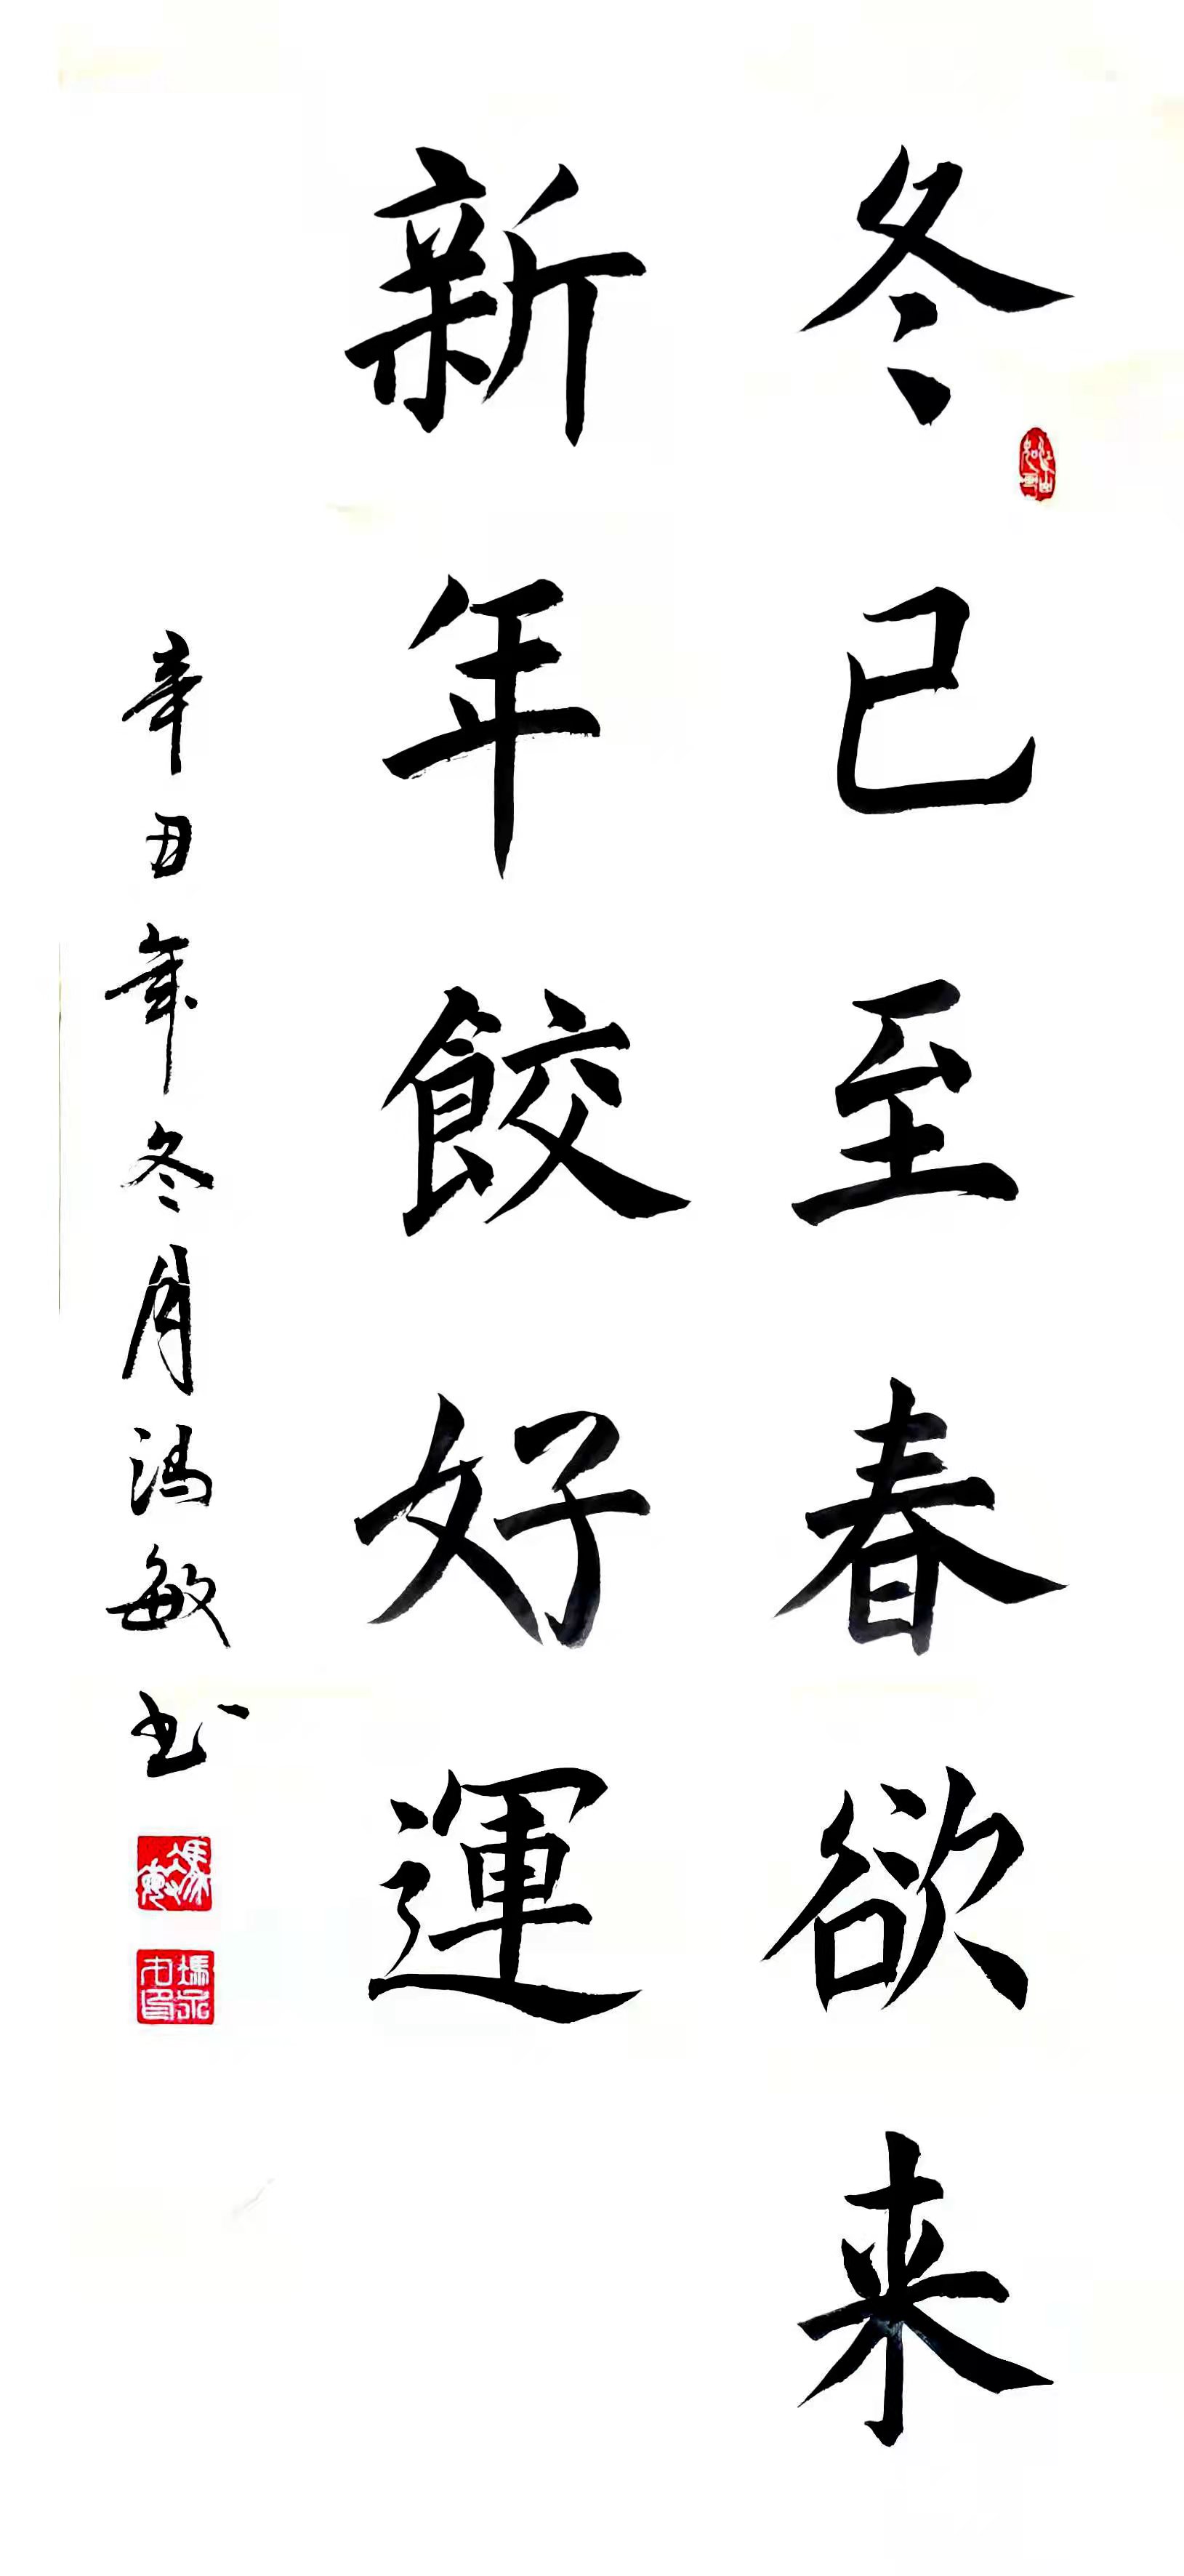 冬已至春欲来
新年餃好運
辛丑年冬月馮敏书